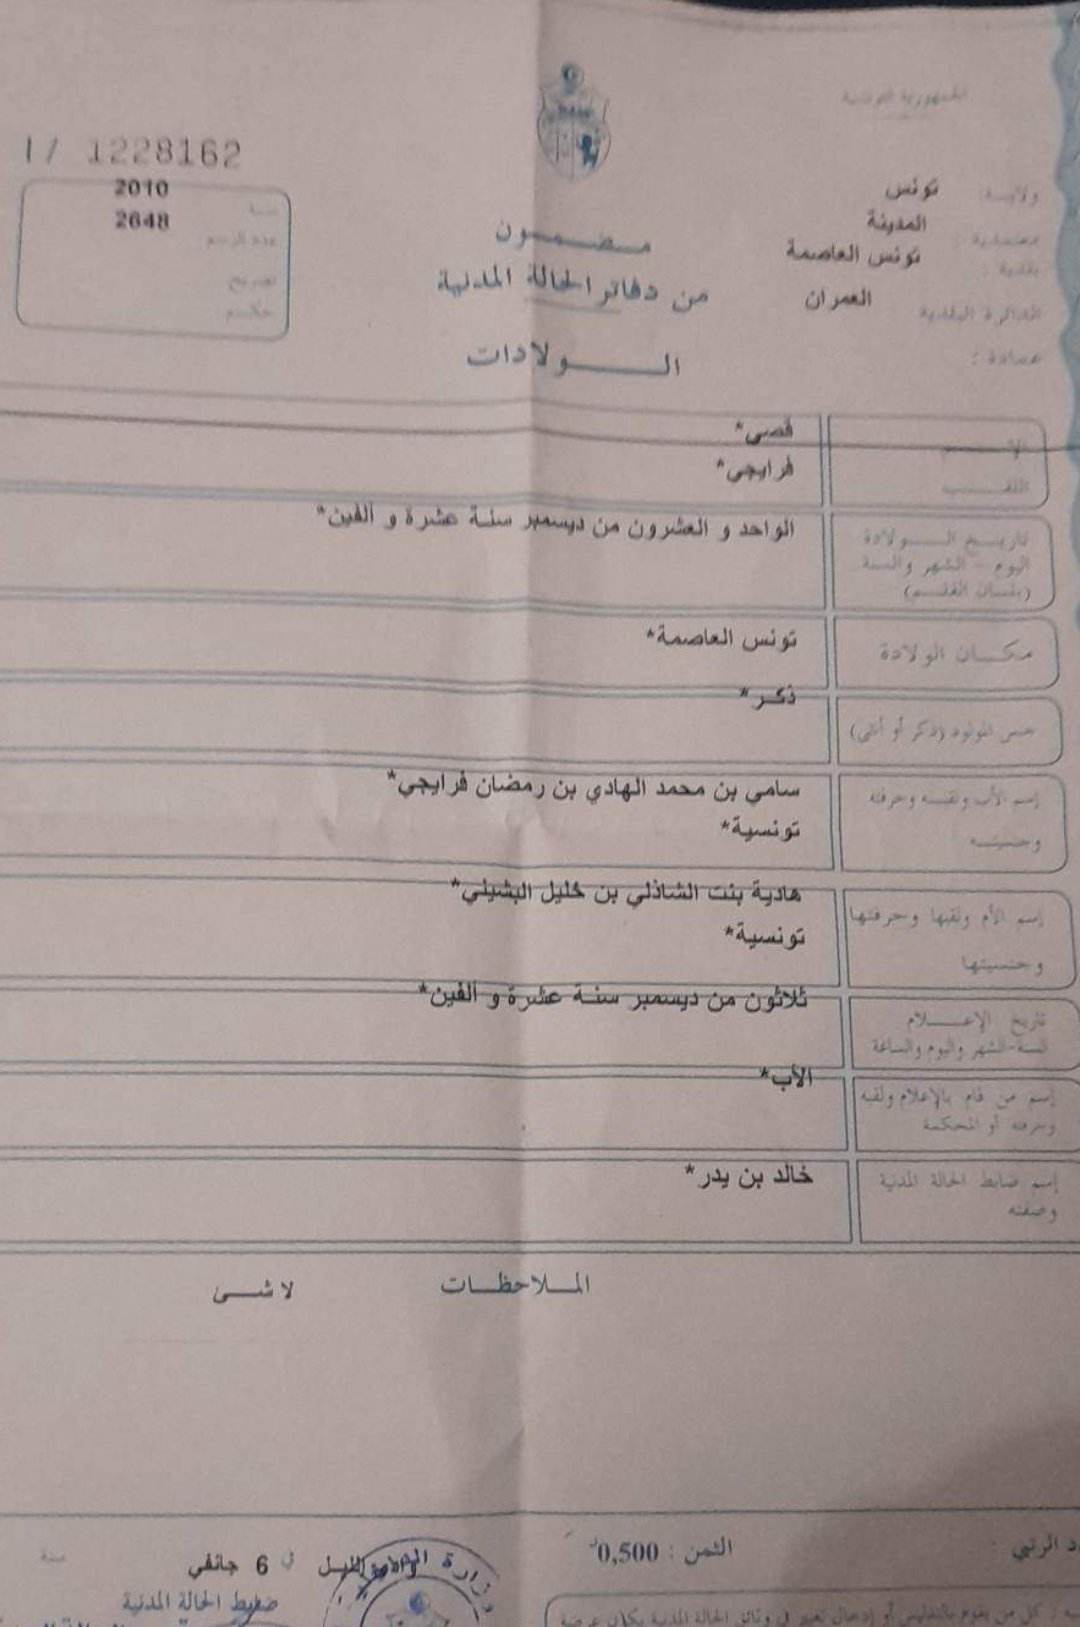 الجمهورية التونسية
I/ 1228162
ولايـة: تونس
معتمدية: المدينة
بلدية: تونس العاصمة
الدائرة البلدية العمران
عمادة:
سنة 2010
عدد الرسم 2648
تصريح
حكم
مضمون
من دفاتر الحالة المدنية
الـولادات
الإسم قصي*
اللقب فرايجي*
تاريخ الولادة
اليوم - الشهر والسنة
(بلسان القلم)
الواحد و العشرون من ديسمبر سنة عشرة و ألفين*
مكان الولادة تونس العاصمة*
جنس المولود (ذكر أو أنثى) ذكر*
إسم الأب ولقبه وحرفته سامي بن محمد الهادي بن رمضان فرايجي*
وجنسيته تونسية*
إسم الأم ولقبها وحرفتها هادية بنت الشاذلي بن خليل البشيني*
وجنسيتها تونسية*
تاريخ الإعلام
السنة-الشهر واليوم والساعة
ثلاثون من ديسمبر سنة عشرة و ألفين*
إسم من قام بالإعلام ولقبه
وحرفته أو المحكمة
الأب*
إسم ضابط الحالة المدنية
وصفته
خالد بن يدر*
الملاحظات لا شى
الرتبي :
الثمن : 0,500
في 6 جانفي سنة
ضابط الحالة المدنية
وزارة
كل من يقوم بالتفليس أو إدخال تغيير في وثائق الحالة المدنية يكون عرضة